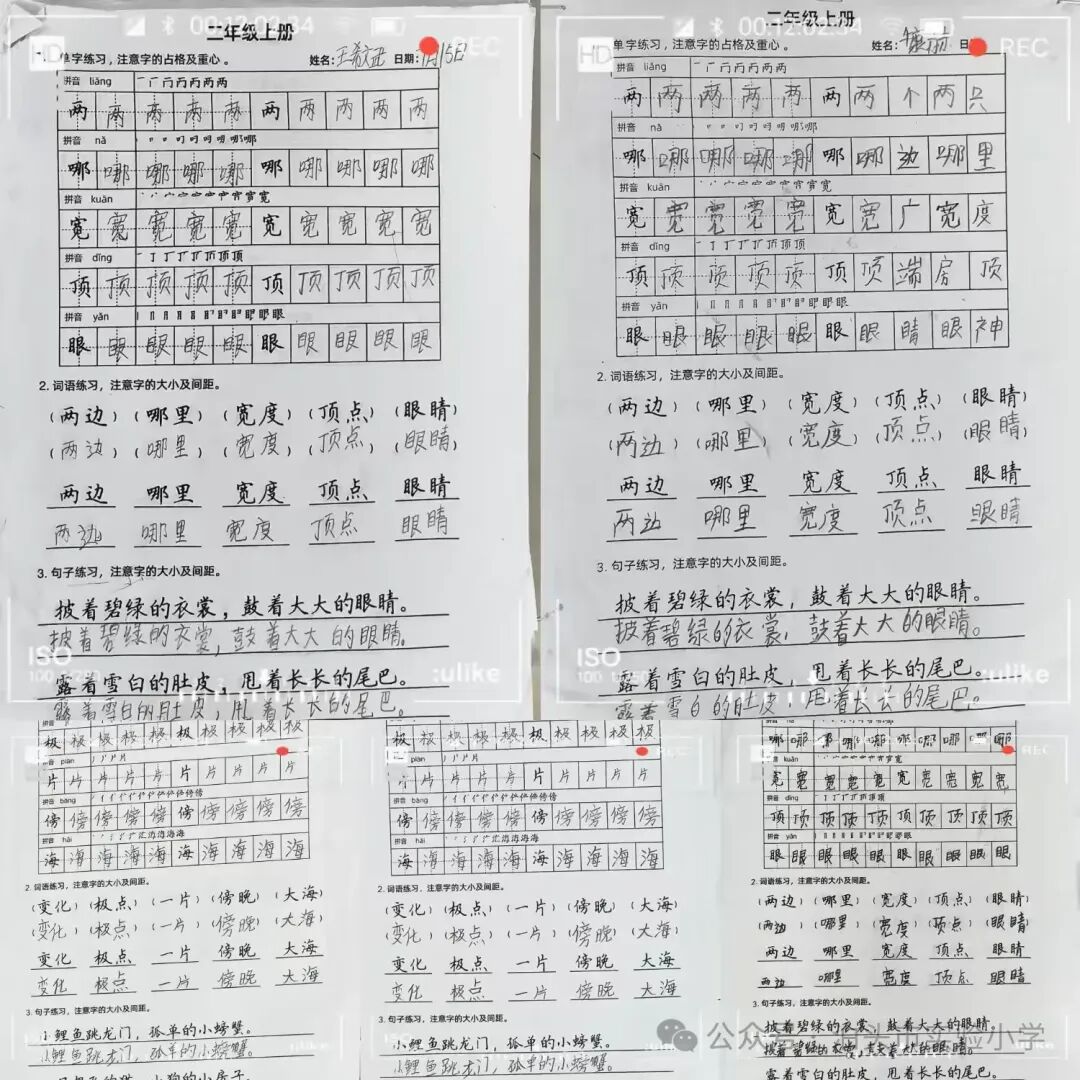 二年级上册
单字练习，注意字的占格及重心。 姓名： 日期：7月15日
拼音 liǎng
两 两 两 两 两 两 两 两 两 两
拼音 nǎ
哪 哪 哪 哪 哪 哪 哪 哪 哪 哪
拼音 kuān
宽 宽 宽 宽 宽 宽 宽 宽 宽 宽
拼音 dǐng
顶 顶 顶 顶 顶 顶 顶 顶 顶 顶
拼音 yǎn
眼 眼 眼 眼 眼 眼 眼 眼 眼 眼
2. 词语练习，注意字的大小及间距。
（两边）（哪里）（宽度）（顶点）（眼睛）
（两边）（哪里）（宽度）（顶点）（眼睛）
两边 哪里 宽度 顶点 眼睛
两边 哪里 宽度 顶点 眼睛
3. 句子练习，注意字的大小及间距。
披着碧绿的衣裳，鼓着大大的眼睛。
披着碧绿的衣裳，鼓着大大的眼睛。
露着雪白的肚皮，甩着长长的尾巴。
露着雪白的肚皮，甩着大长的尾巴。
HD
00:12:02:34
REC
ISO
100
:ulike
二年级上册
单字练习，注意字的占格及重心。 姓名： 日
拼音 liǎng
两 两 两 两 两 两 两 个 两 只
拼音 nǎ
哪 哪 哪 哪 哪 哪 哪 边 哪 里
拼音 kuān
宽 宽 宽 宽 宽 宽 宽 广 宽 度
拼音 dǐng
顶 顶 顶 顶 顶 顶 顶 端 房 顶
拼音 yǎn
眼 眼 眼 眼 眼 眼 眼 睛 眼 神
2. 词语练习，注意字的大小及间距。
（两边）（哪里）（宽度）（顶点）（眼睛）
（两边）（哪里）（宽度）（顶点）（眼睛）
两边 哪里 宽度 顶点 眼睛
两边 哪里 宽度 顶点 眼睛
3. 句子练习，注意字的大小及间距。
披着碧绿的衣裳，鼓着大大的眼睛。
披着碧绿的衣裳，鼓着大大的眼睛。
露着雪白的肚皮，甩着长长的尾巴。
露着雪白的肚皮，甩着长长的尾巴。
HD
00:12:02:34
REC
ISO
100
:ulike
极 极 极 极 极 极 极 极 极 极
拼音 piàn
片 片 片 片 片 片 片 片 片 片
拼音 bàng
傍 傍 傍 傍 傍 傍 傍 傍 傍 傍
拼音 hǎi
海 海 海 海 海 海 海 海 海 海
2. 词语练习，注意字的大小及间距。
（变化）（极点）（一片）（傍晚）（大海）
（变化）（极点）（一片）（傍晚）（大海）
变化 极点 一片 傍晚 大海
变化 极点 一片 傍晚 大海
3. 句子练习，注意字的大小及间距。
小鲤鱼跳龙门，孤单的小螃蟹。
小鲤鱼跳龙门，孤单的小螃蟹。
极 极 极 极 极 极 极 极 极 极
拼音 piàn
片 片 片 片 片 片 片 片 片 片
拼音 bàng
傍 傍 傍 傍 傍 傍 傍 傍 傍 傍
拼音 hǎi
海 海 海 海 海 海 海 海 海 海
2. 词语练习，注意字的大小及间距。
（变化）（极点）（一片）（傍晚）（大海）
（变化）（极点）（一片）（傍晚）（大海）
变化 极点 一片 傍晚 大海
变化 极点 一片 傍晚 大海
3. 句子练习，注意字的大小及间距。
小鲤鱼跳龙门，孤单的小螃蟹。
小鲤鱼跳龙门，孤单的小螃蟹。
REC
哪 哪 哪 哪 哪 哪 哪 哪 哪
拼音 kuān
宽 宽 宽 宽 宽 宽 宽 宽 宽 宽
拼音 dǐng
顶 顶 顶 顶 顶 顶 顶 顶 顶 顶
拼音 yǎn
眼 眼 眼 眼 眼 眼 眼 眼 眼 眼
2. 词语练习，注意字的大小及间距。
（两边）（哪里）（宽度）（顶点）（眼睛）
（两边）（哪里）（宽度）（顶点）（眼睛）
两边 哪里 宽度 顶点 眼睛
两边 哪里 宽度 顶点 眼睛
3. 句子练习，注意字的大小及间距。
披着碧绿的衣裳 鼓着大大的眼睛。
露着雪白的肚皮，甩着长长的尾巴。
公众号
小学